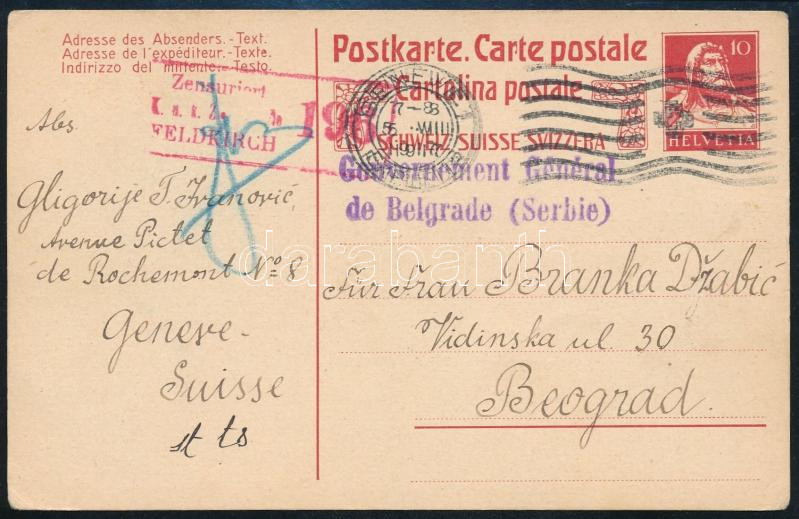 Adresse des Absenders.-Text.
Adresse de l'expéditeur.-Texte.
Indirizzo del mittente.-Testo.
Postkarte. Carte postale
Cartolina postale
SCHWEIZ SUISSE SVIZZERA
10
HELVETIA
Zensuriert
FELDKIRCH
196
GENEVE 1
Gouvernement Général
de Belgrade (Serbie)
Abs.
Gligorije T. Ivanović,
Avenue Pictet
de Rochemont No 8
Geneve-
Suisse
Für Frau Branka Džabić
Vidinska ul 30
Beograd.
darabanth